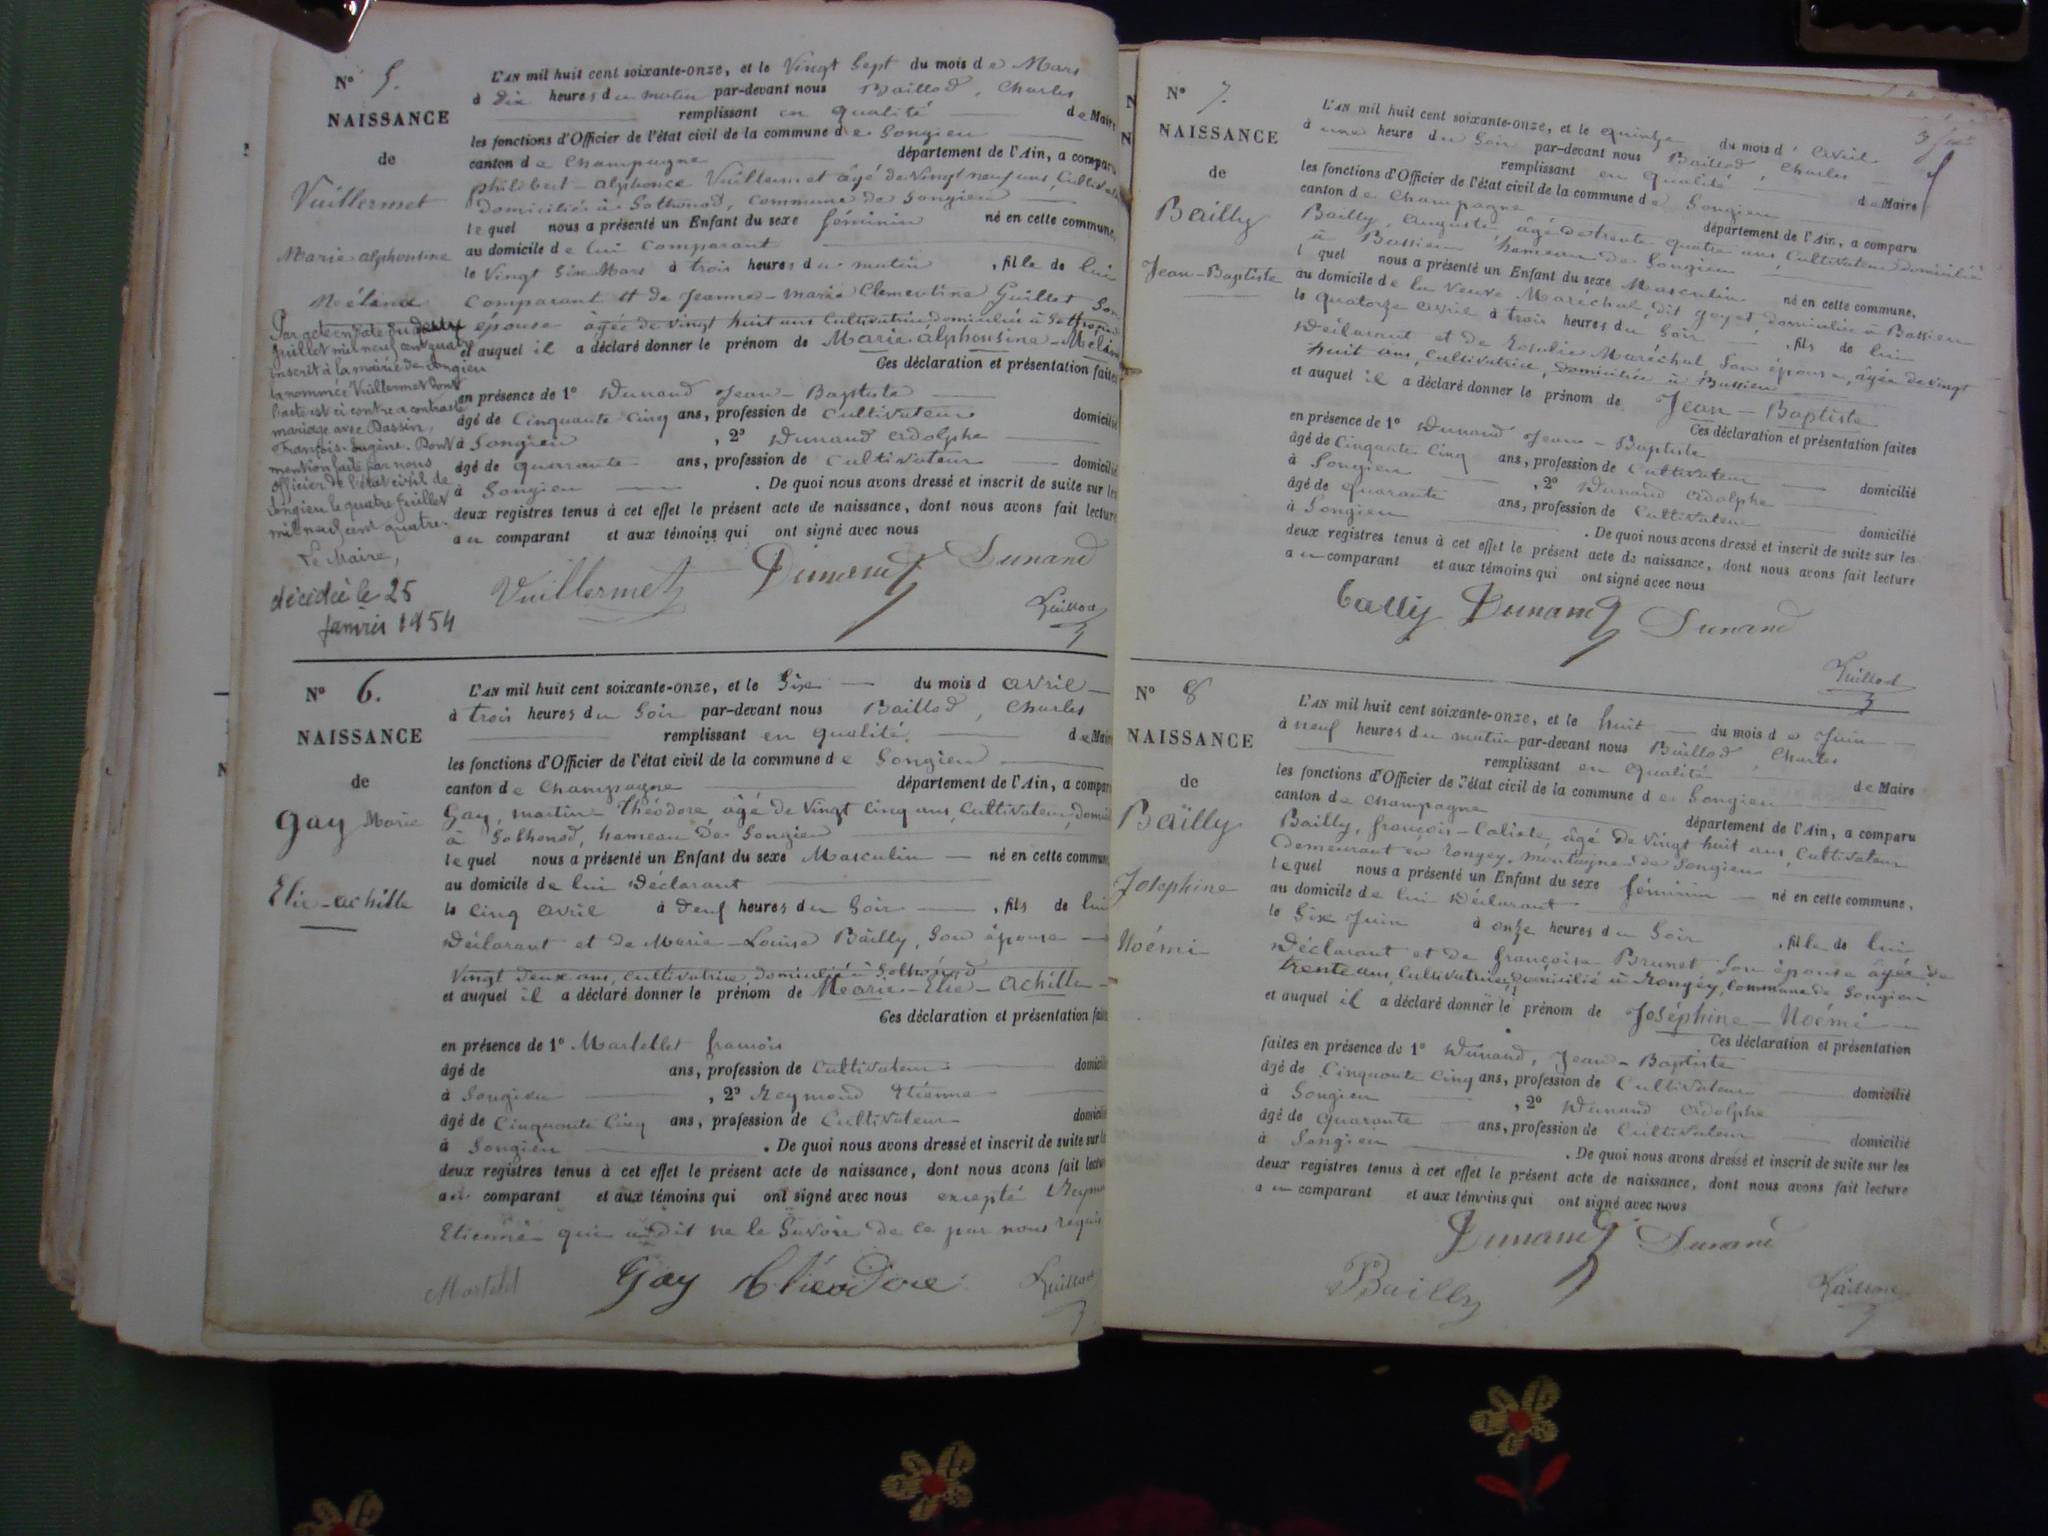 N° 5.
NAISSANCE
de
Vuillermet
Marie alphonsine
Mélanie
Par acte en date du
Juillet mil neuf cent quatre
inscrit à la mairie de Songieu
la nommée Vuillermet Dont
l'acte est ci contre a contracté
mariage avec Dassin,
François-Eugène. Dont
mention faite par nous
officier de l'état civil de
Songieu le quatre Juillet
mil neuf cent quatre.
Le Maire,
décédée le 25
janvier 1954
L'AN mil huit cent soixante-onze, et le Vingt Sept du mois de Mars
à Dix heures du matin par-devant nous Baillod, Charles
remplissant en qualité de Maire
les fonctions d'Officier de l'état civil de la commune de Songieu
canton de Champagne département de l'Ain, a comparu
philibert-alphonce Vuillermet âgé de Vingt neuf ans, Cultivateur
domicilié à Sothonod, Commune de Songieu
lequel nous a présenté un Enfant du sexe féminin né en cette commune,
au domicile de lui Comparant
le Vingt Six Mars à trois heures du matin, fille de lui
Comparant et de Jeanne-marie Clementine Guillet Son
épouse âgée de vingt huit ans Cultivatrice domiciliée à Sothonod
et auquel il a déclaré donner le prénom de Marie-alphonsine-Mélanie
Ces déclaration et présentation faites
en présence de 1° Dunand Jean-Baptiste
âgé de Cinquante Cinq ans, profession de Cultivateur domicilié
à Songieu, 2° Dunand Adolphe
âgé de quarante ans, profession de Cultivateur domicilié
à Songieu. De quoi nous avons dressé et inscrit de suite sur les
deux registres tenus à cet effet le présent acte de naissance, dont nous avons fait lecture
au comparant et aux témoins qui ont signé avec nous
Vuillermet Dunand Dunand
Baillod
N° 6.
NAISSANCE
de
Gay Marie
Elie-achille
L'AN mil huit cent soixante-onze, et le Six du mois d avril
à trois heures du Soir par-devant nous Baillod, Charles
remplissant en qualité de Maire
les fonctions d'Officier de l'état civil de la commune de Songieu
canton de Champagne département de l'Ain, a comparu
Gay, martin théodore, âgé de Vingt Cinq ans, Cultivateur, domicilié
à Sothonod, hameau de Songieu
lequel nous a présenté un Enfant du sexe Masculin né en cette commune
au domicile de lui Déclarant
le Cinq avril à Neuf heures du Soir, fils de lui
Déclarant et de Marie-Louise Bailly, Son épouse
Vingt Deux ans, cultivatrice domiciliée à Sothonod
et auquel il a déclaré donner le prénom de Marie-Elie-Achille
Ces déclaration et présentation faites
en présence de 1° Martellet françois
âgé de ans, profession de Cultivateur domicilié
à Songieu, 2° Reymond Etienne
âgé de Cinquante Cinq ans, profession de Cultivateur domicilié
à Songieu. De quoi nous avons dressé et inscrit de suite sur les
deux registres tenus à cet effet le présent acte de naissance, dont nous avons fait lecture
au comparant et aux témoins qui ont signé avec nous excepté Reymond
Etienne qui a dit ne le Savoir de ce par nous requis
Martelet Gay théodore Baillod
N° 7.
NAISSANCE
de
Bailly
Jean-Baptiste
L'AN mil huit cent soixante-onze, et le quinze du mois d' avril
à une heure du Soir par-devant nous Baillod, Charles
remplissant en qualité de Maire
les fonctions d'Officier de l'état civil de la commune de Songieu
canton de Champagne département de l'Ain, a comparu
Bailly, auguste, âgé de trente quatre ans, Cultivateur domicilié
à Bassieu hameau de Songieu
lequel nous a présenté un Enfant du sexe Masculin né en cette commune,
au domicile de la Veuve Maréchal, dit goyet, domiciliée à Bassieu
le quatorze avril à trois heures du Soir, fils de lui
Déclarant et de Rosalie Maréchal Son épouse, âgée de vingt
huit ans, cultivatrice, domiciliée à Bassieu
et auquel il a déclaré donner le prénom de Jean-Baptiste
Ces déclaration et présentation faites
en présence de 1° Dunand Jean-Baptiste
âgé de Cinquante Cinq ans, profession de Cultivateur domicilié
à Songieu, 2° Dunand Adolphe
âgé de Quarante ans, profession de Cultivateur domicilié
à Songieu. De quoi nous avons dressé et inscrit de suite sur les
deux registres tenus à cet effet le présent acte de naissance, dont nous avons fait lecture
au comparant et aux témoins qui ont signé avec nous
Bailly Dunand Dunand
Baillod
N° 8
NAISSANCE
de
Bailly
Josephine
Noémi
L'AN mil huit cent soixante-onze, et le huit du mois de Juin
à neuf heures du matin par-devant nous Baillod, Charles
remplissant en qualité de Maire
les fonctions d'Officier de l'état civil de la commune de Songieu
canton de Champagne département de l'Ain, a comparu
Bailly, françois-Caliste, âgé de Vingt huit ans, Cultivateur
Demeurant en rongey, montagne de Songieu
lequel nous a présenté un Enfant du sexe féminin né en cette commune,
au domicile de lui Déclarant
le Six Juin à onze heures du Soir, fille de lui
Déclarant et de françoise Brunet Son épouse âgée de
trente ans, Cultivatrice domicilié à Rongey, Commune de Songieu
et auquel il a déclaré donner le prénom de Joséphine-Noémi
Ces déclaration et présentation
faites en présence de 1° Dunand, Jean-Baptiste
âgé de Cinquante Cinq ans, profession de Cultivateur domicilié
à Songieu, 2° Dunand Adolphe
âgé de quarante ans, profession de Cultivateur domicilié
à Songieu. De quoi nous avons dressé et inscrit de suite sur les
deux registres tenus à cet effet le présent acte de naissance, dont nous avons fait lecture
au comparant et aux témoins qui ont signé avec nous
Dunand Dunand
Bailly Baillod